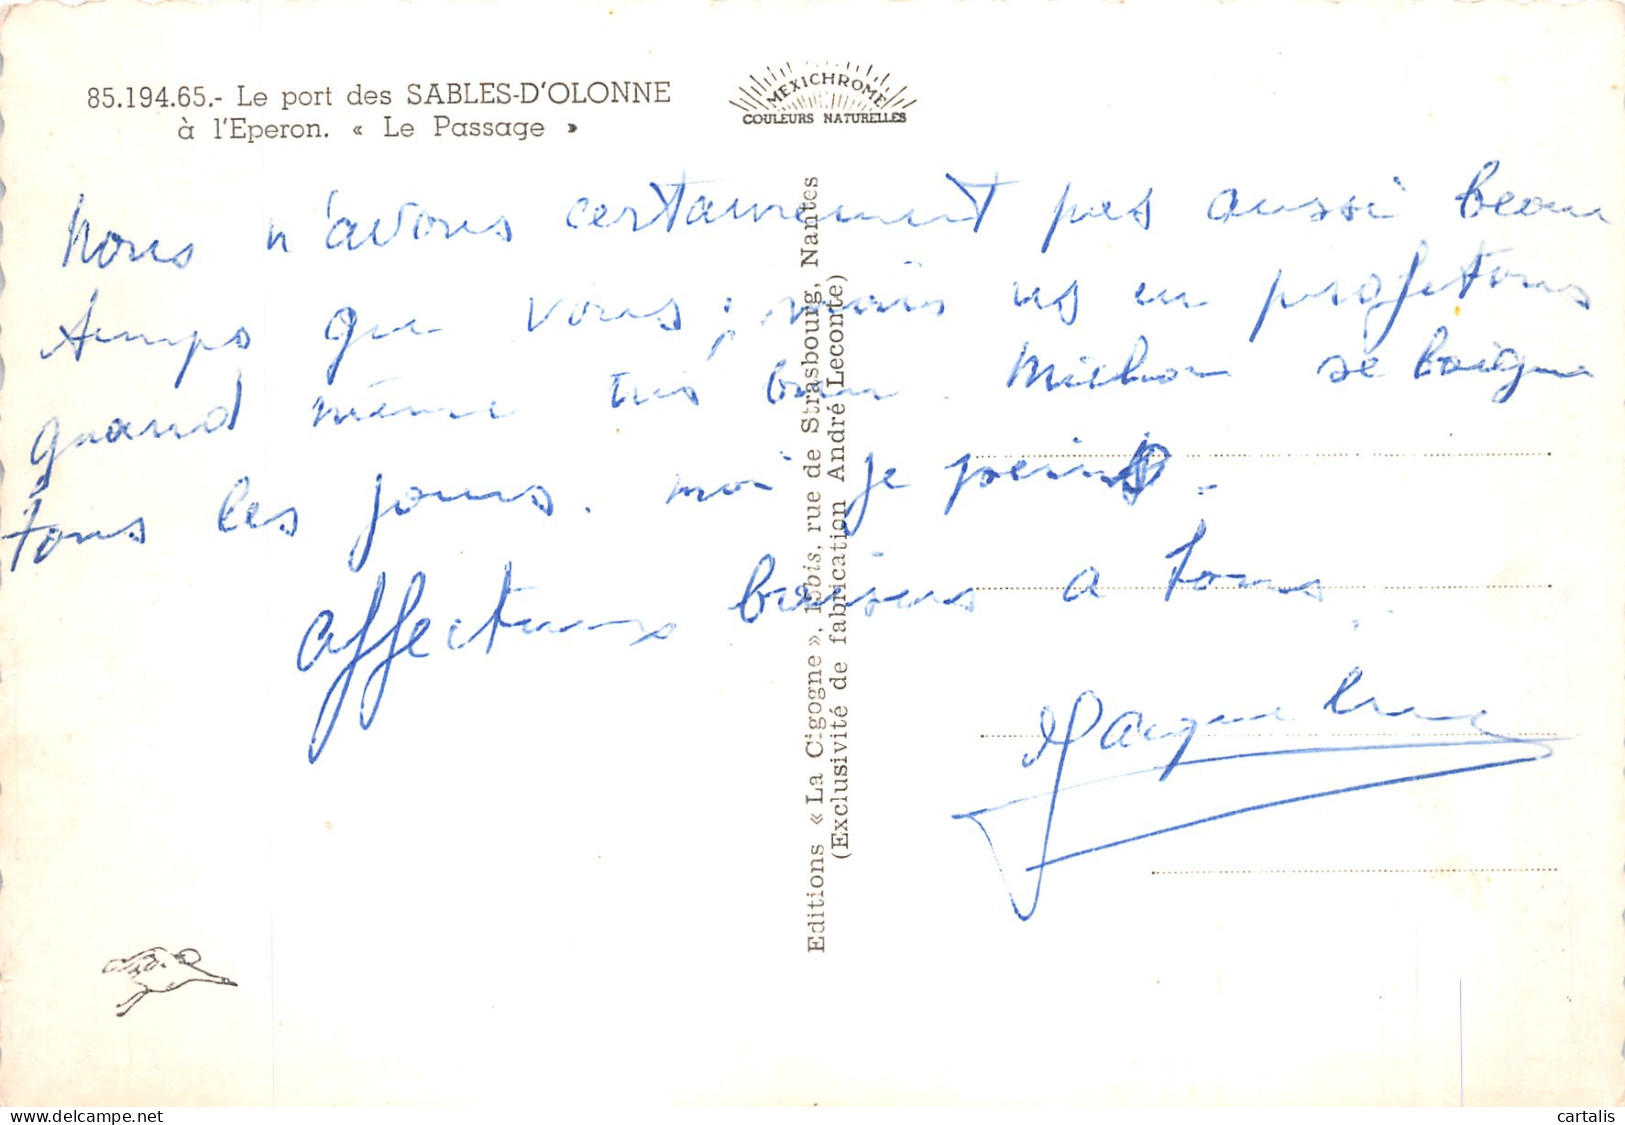 85.194.65.- Le port des SABLES-D'OLONNE
à l'Eperon. « Le Passage »
MEXICHROME
COULEURS NATURELLES
Nous n'avons certainement pas aussi beau
temps que vous ; mais ns en profitons
quand même très bien. Michou se baigne
tous les jours. moi je peins.
affectueux baisers a tous
Jacqueline
Editions « La Cigogne », 15bis, rue de Strasbourg, Nantes
(Exclusivité de fabrication André Leconte)
delcampe.net
cartalis